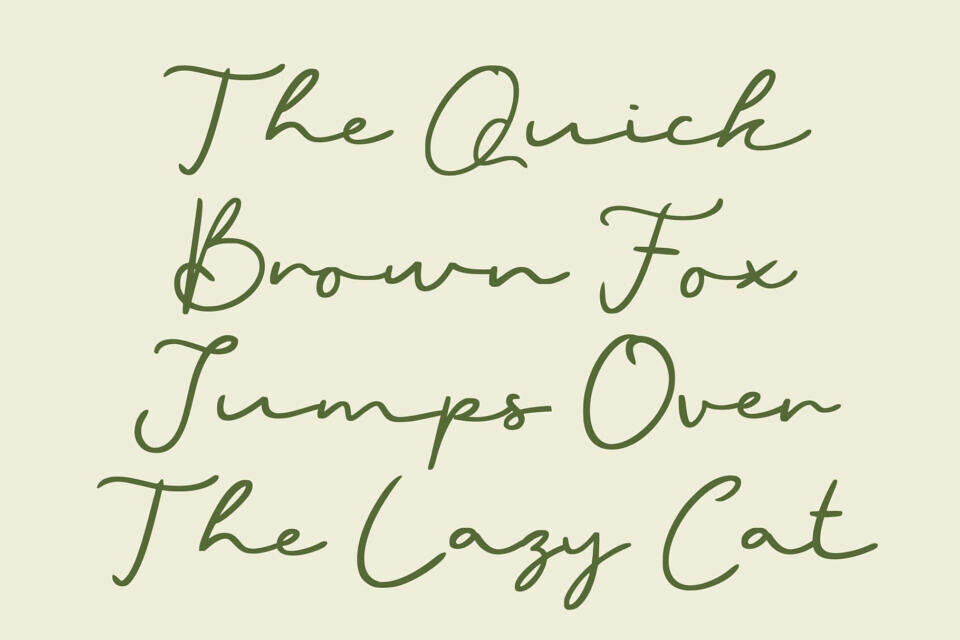 The Quick
Brown Fox
Jumps Over
The Lazy Cat